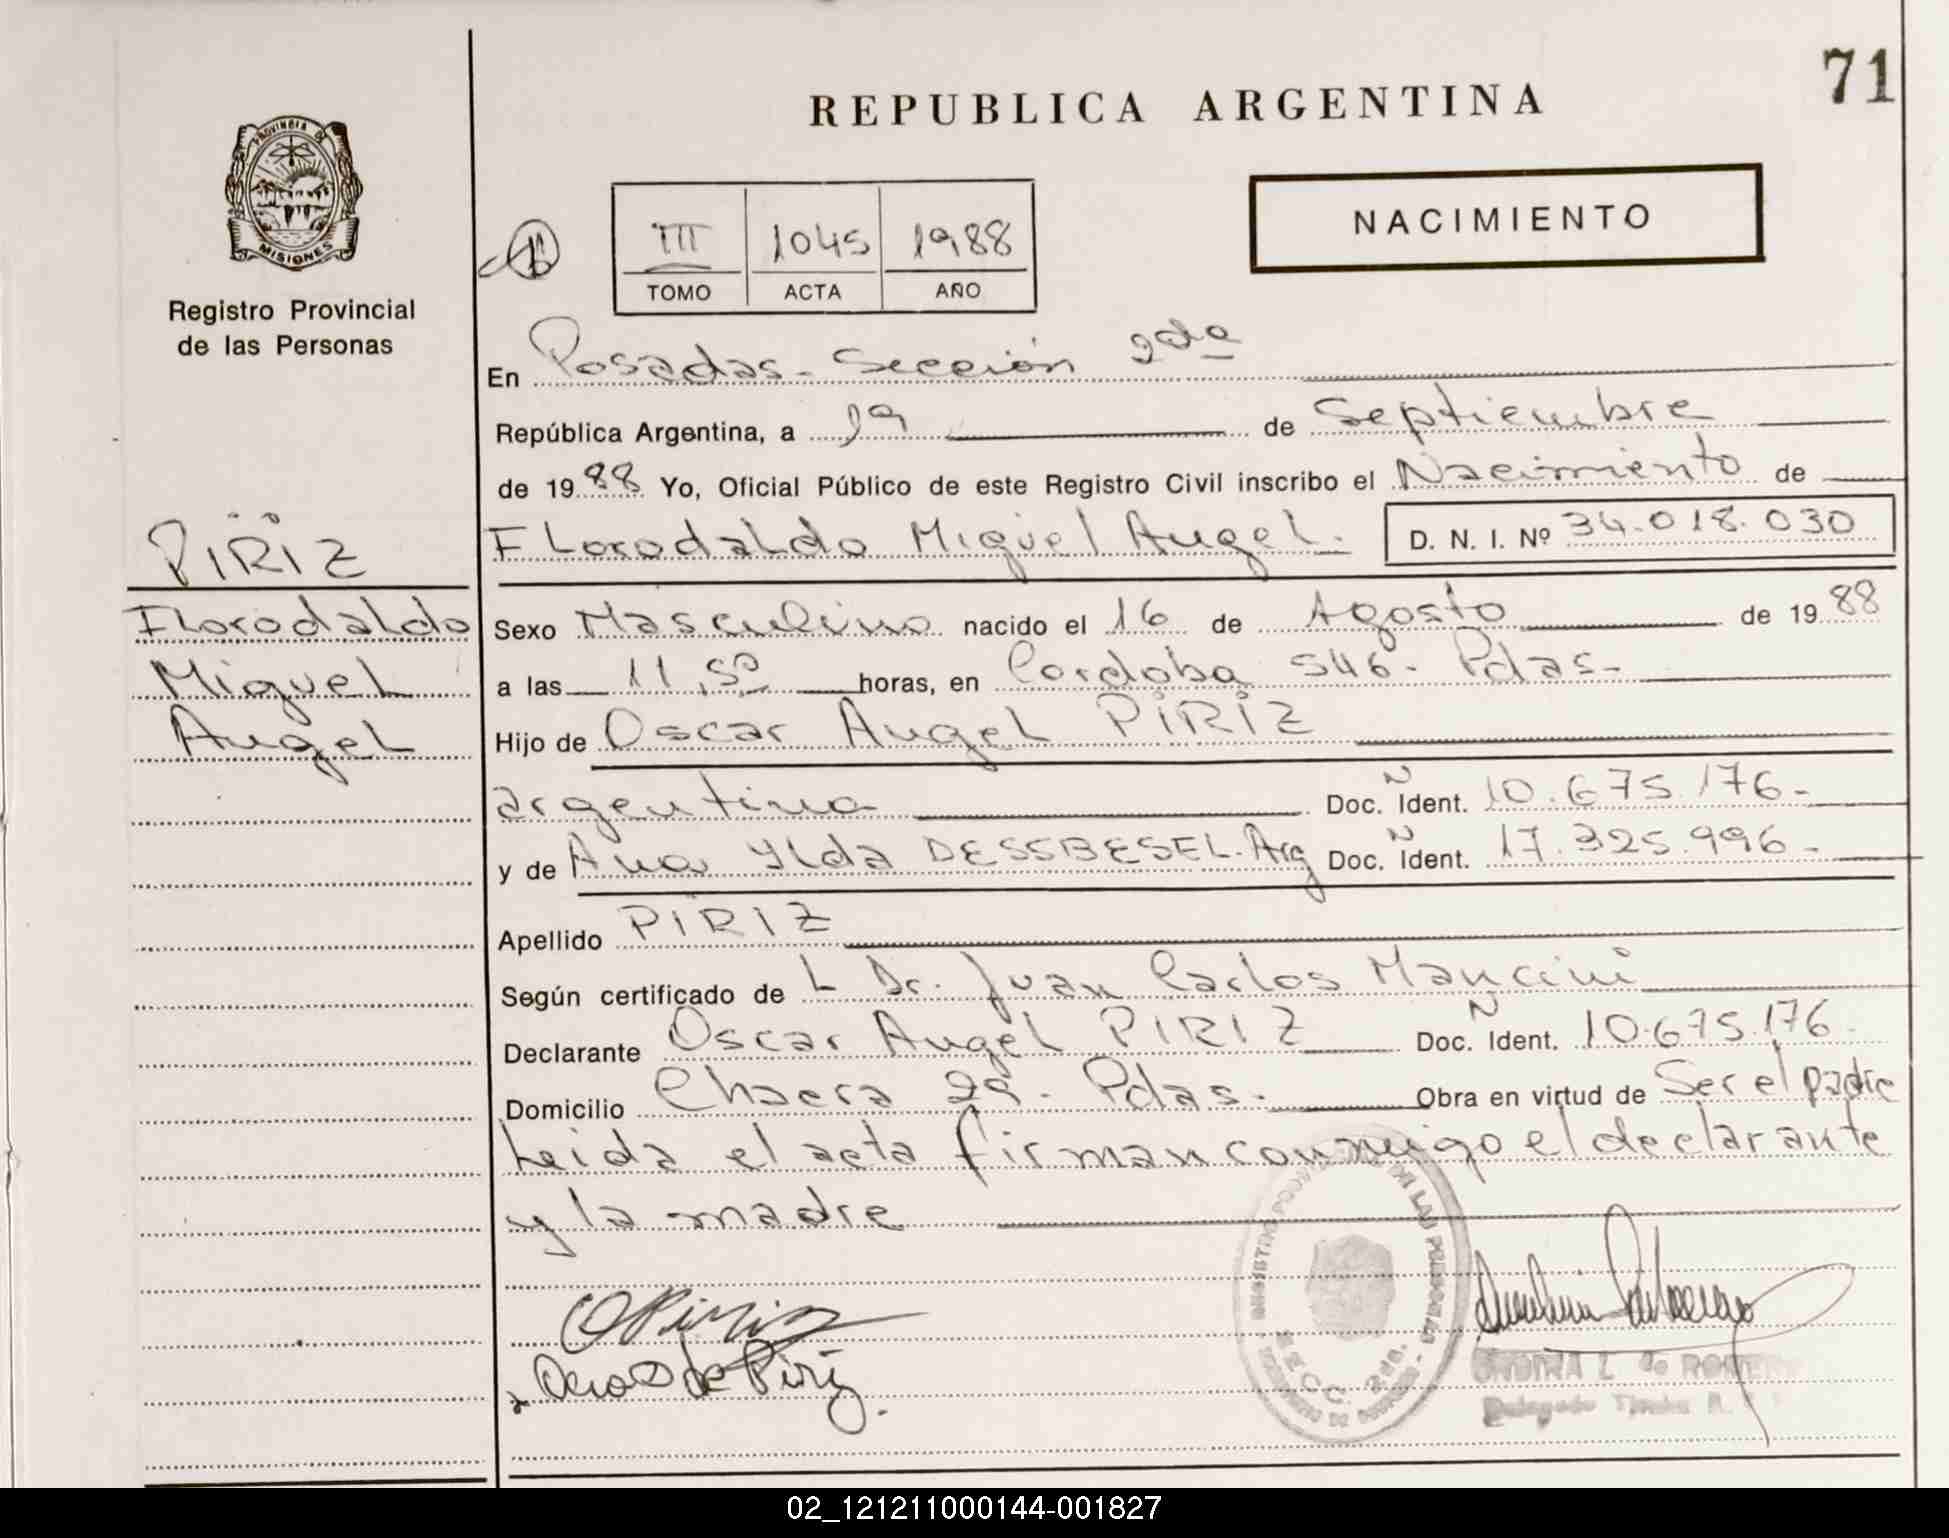 71
REPUBLICA ARGENTINA
PROVINCIA DE
MISIONES
Registro Provincial
de las Personas
NACIMIENTO
III 1045 1988
TOMO ACTA AÑO
En Posadas - Sección 2da
República Argentina, a 19 de Septiembre
de 1988 Yo, Oficial Público de este Registro Civil inscribo el Nacimiento de
Florodaldo Miguel Angel. D. N. I. Nº 34.018.030
PIRIZ
Florodaldo
Miguel
Angel
Sexo Masculino nacido el 16 de Agosto de 1988
a las 11,50 horas, en Cordoba 546 - Pdas -
Hijo de Oscar Angel PIRIZ
argentino Doc. Ñ Ident. 10.675.176 -
y de Ana Ylda DESSBESEL. Arg Doc. Ñ Ident. 17.325.996 -
Apellido PIRIZ
Según certificado de L Dr. Juan Carlos Mancini
Declarante Oscar Angel PIRIZ Doc. Ñ Ident. 10.675.176 -
Domicilio Chacra 29 - Pdas - Obra en virtud de Ser el padre
Leida el acta firman conmigo el declarante
y la madre
OPiriz
de Piriz
SECC. 2da.
ONDINA L. de
02_121211000144-001827